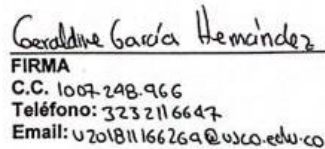 Geraldine García Hernández
FIRMA
C.C. 1007.248.966
Teléfono: 3232116647
Email: u20181166269@usco.edu.co